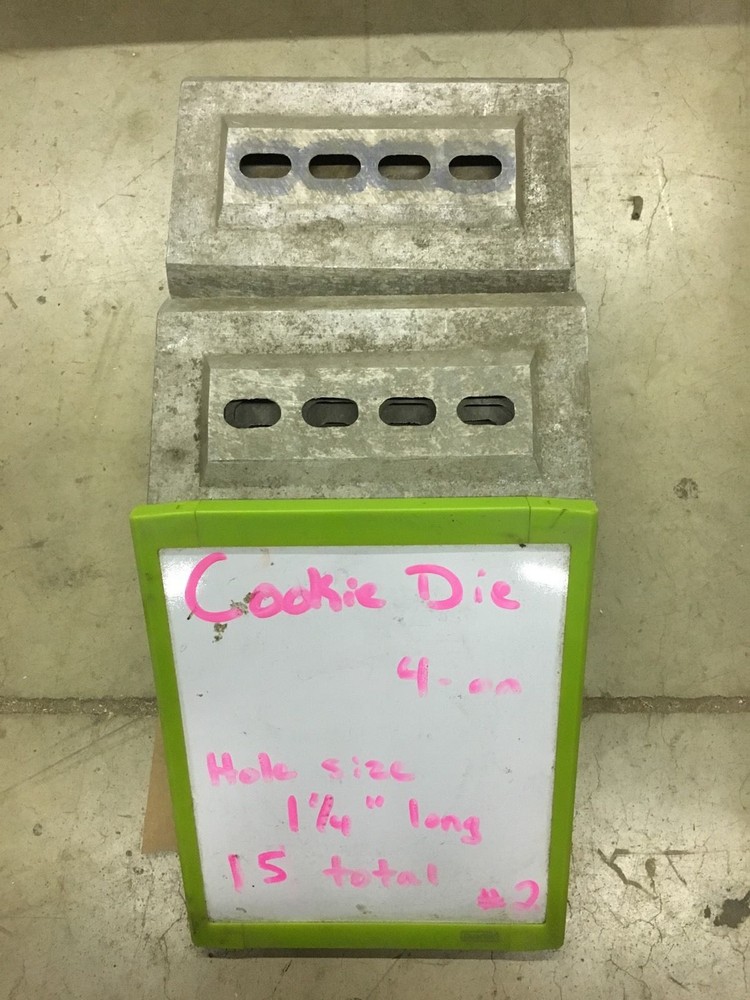 Cookie Die
4-on
Hole size
1 1/4" long
15 total
#2